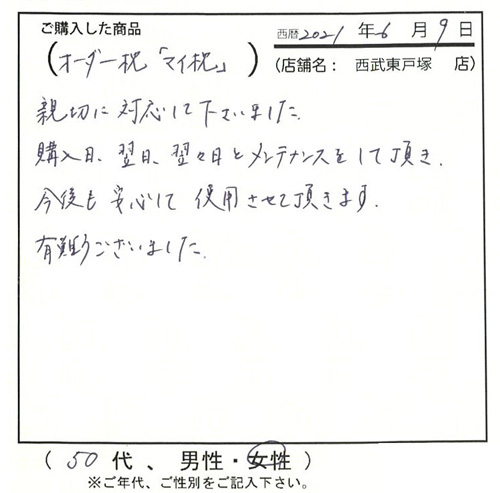 ご購入した商品
西暦 2021 年 6 月 9 日
(オーダー枕「マイ枕」)
(店舗名： 西武東戸塚 店)
親切に対応して下さいました。
購入日、翌日、翌々日とメンテナンスをして頂き、
今後も安心して使用させて頂きます。
有難うございました。
( 50 代 、 男性・女性 )
※ご年代、ご性別をご記入下さい。